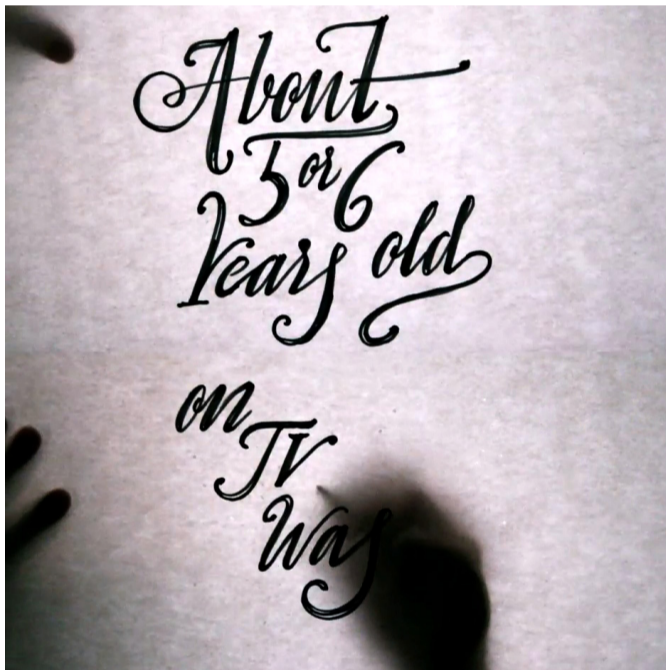 About
5 or 6
Years old
on
TV
Was